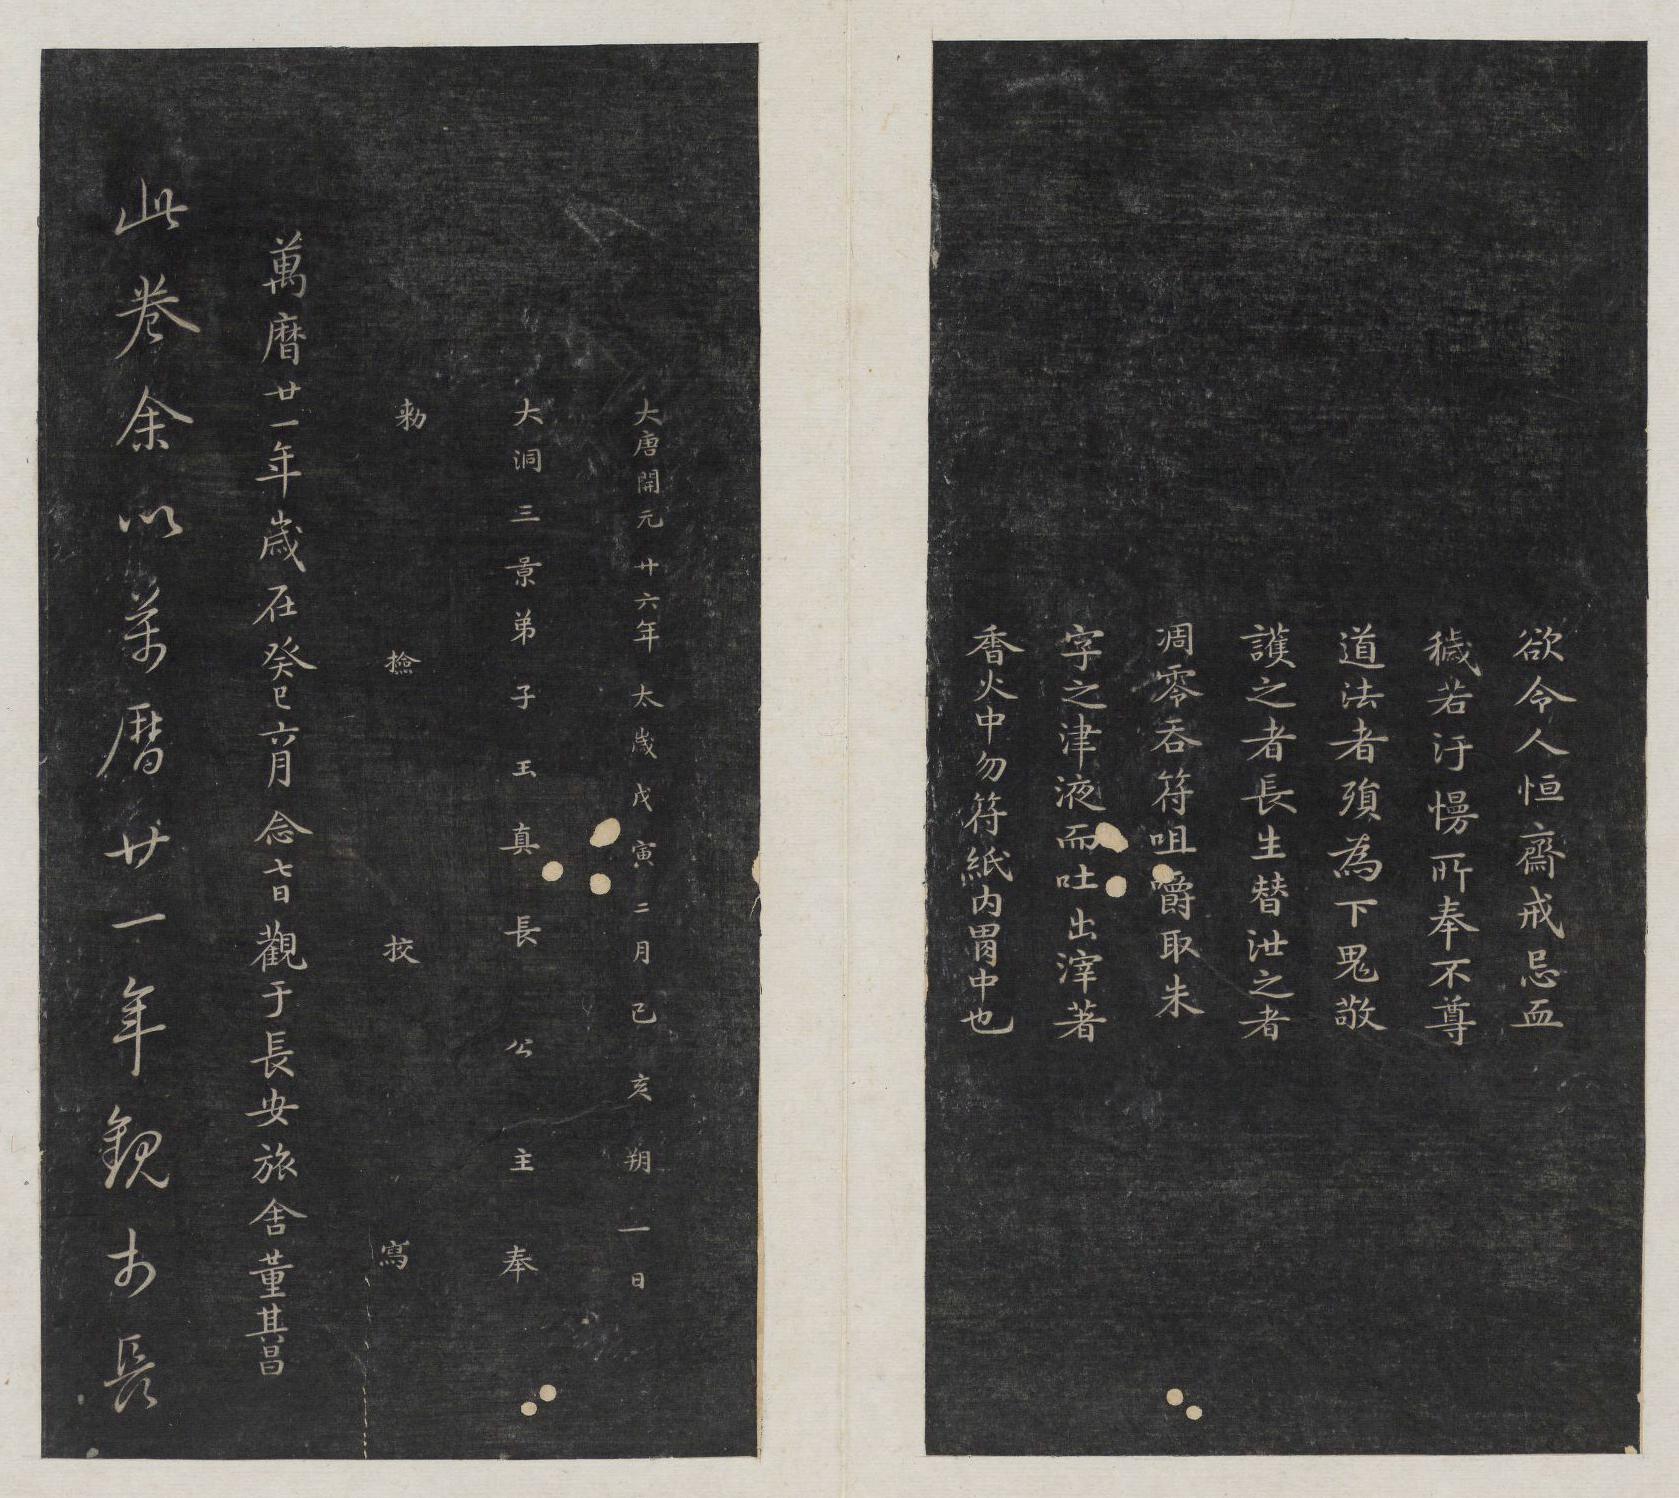 欲令人恒齋戒忌血
穢若汙慢所奉不尊
道法者殞為下鬼敬
護之者長生替泄之者
凋零吞符咀嚼取朱
字之津液而吐出滓著
香火中勿符紙內胃中也
大唐開元廿六年太歲戊寅二月己亥朔一日
大洞三景弟子玉真長公主奉
勑檢挍寫
萬曆廿一年歲在癸巳六月念七日觀于長安旅舍董其昌
此卷余以萬曆廿一年觀於長